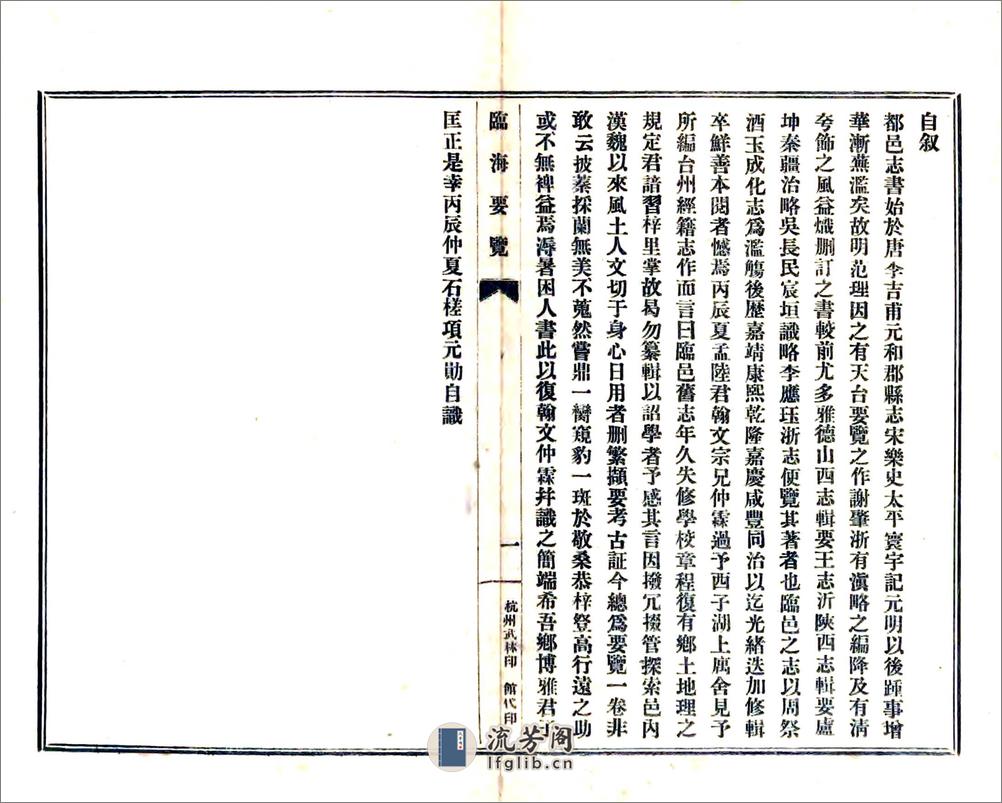 自叙
都邑志書始於唐李吉甫元和郡縣志宋樂史太平寰宇記元明以後踵事增
華漸蕪濫矣故明范理因之有天台要覽之作謝肇浙有滇略之編降及有淸
夸飾之風益熾删訂之書較前尤多雅德山西志輯要王志沂陝西志輯要盧
坤秦疆治略吳長民宸垣識略李應珏浙志便覽其著者也臨邑之志以周祭
酒玉成化志爲濫觴後歷嘉靖康熙乾隆嘉慶咸豐同治以迄光緖迭加修輯
卒鮮善本閱者憾焉丙辰夏孟陸君翰文宗兄仲霖過予西子湖上寓舍見予
所編台州經籍志作而言曰臨邑舊志年久失修學校章程復有鄕土地理之
規定君諳習梓里掌故曷勿纂輯以詔學者予感其言因撥冗掇管探索邑內
漢魏以來風土人文切于身心日用者删繁擷要考古証今總爲要覽一卷非
敢云披蓁採蘭無美不蒐然嘗鼎一臠窺豹一斑於敬桑恭梓登高行遠之助
或不無裨益焉溽暑困人書此以復翰文仲霖幷識之簡端希吾鄕博雅君子
臨海要覽
一
杭州武林印書館代印
匡正是幸丙辰仲夏石槎項元勛自識
流芳阁
lfglib.cn